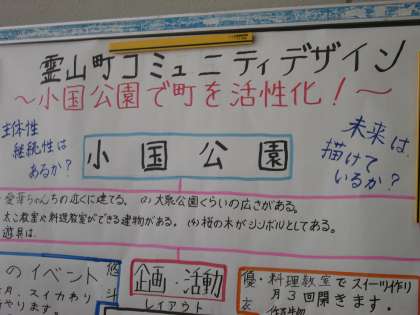 霊山町コミュニティデザイン
～小国公園で町を活性化！～
主体性
継続性は
あるか？
小国公園
未来は
描けて
いるか？
愛華ちゃんちの近くに建てる。 (2) 大泉公園くらいの広さがある。
太こ教室や料理教室ができる建物がある。 (4) 桜の木がシンボルとしてある。
遊具は
のイベント
悠
斗
月、スイカわり
やります。
企画・活動
レイアウト
優・料理教室でスイーツ作り
衣
月3回開きます。